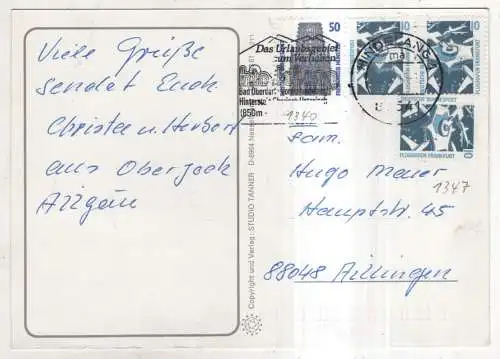 Viele Grüße
sendet Euch
Christa u. Herbert
aus Oberjoch
Allgäu
Copyright und Verlag: STUDIO TANNER · D-8964 Nesselwang
50
10
10
Das Urlaubsgebiet
zum Verlieben
Bad Oberdorf
Hinterstein
(850m -
HINDELANG
1340
FLUGHAFEN FRANKFURT
FLUGHAFEN FRANKFURT
10
1347
Fam.
Hugo Mauer
Hauptstr. 45
88048 Ailingen